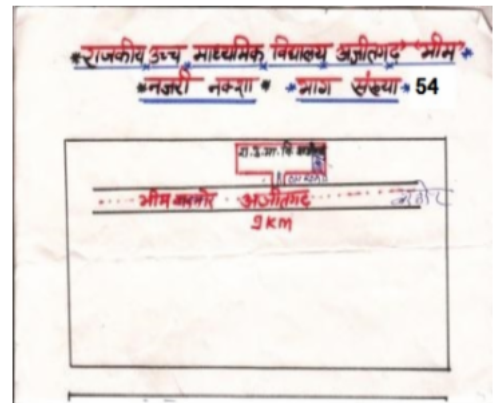 *राजकीय उच्च माध्यमिक विद्यालय अजीतगढ़ भीम*
*नजरी नक्शा* *भाग संख्या* 54
रा.उ.मा.वि
भीम बदनोर अजीतगढ़
9 km